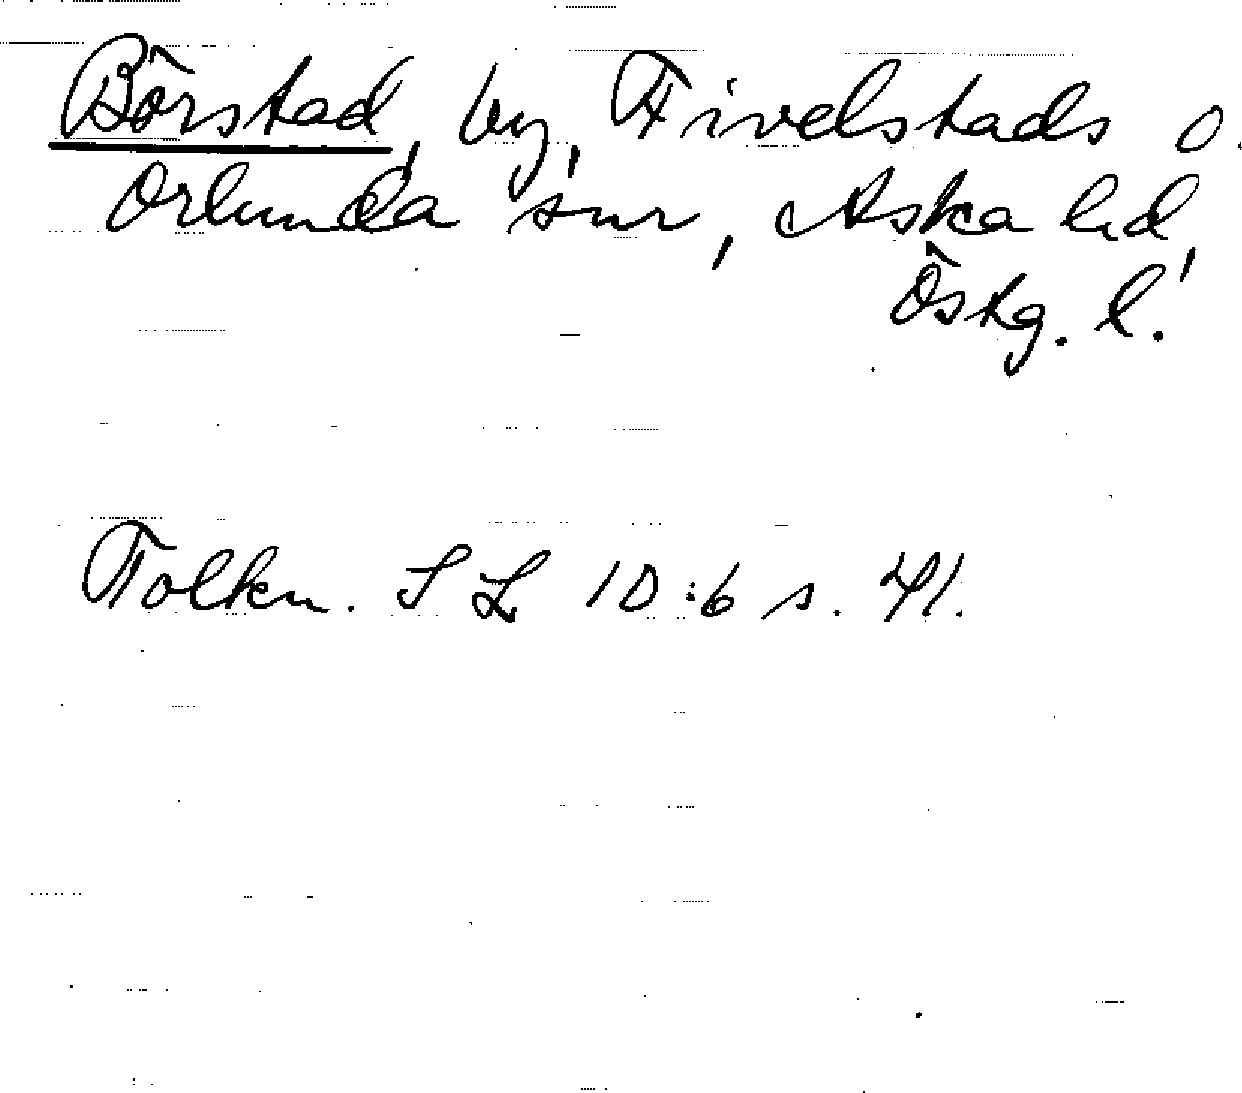 Börstad, by, Fivelstads o.
Orlunda snr, Aska hd,
Östg. l.
Tolkn. SL 10:6 s. 41.